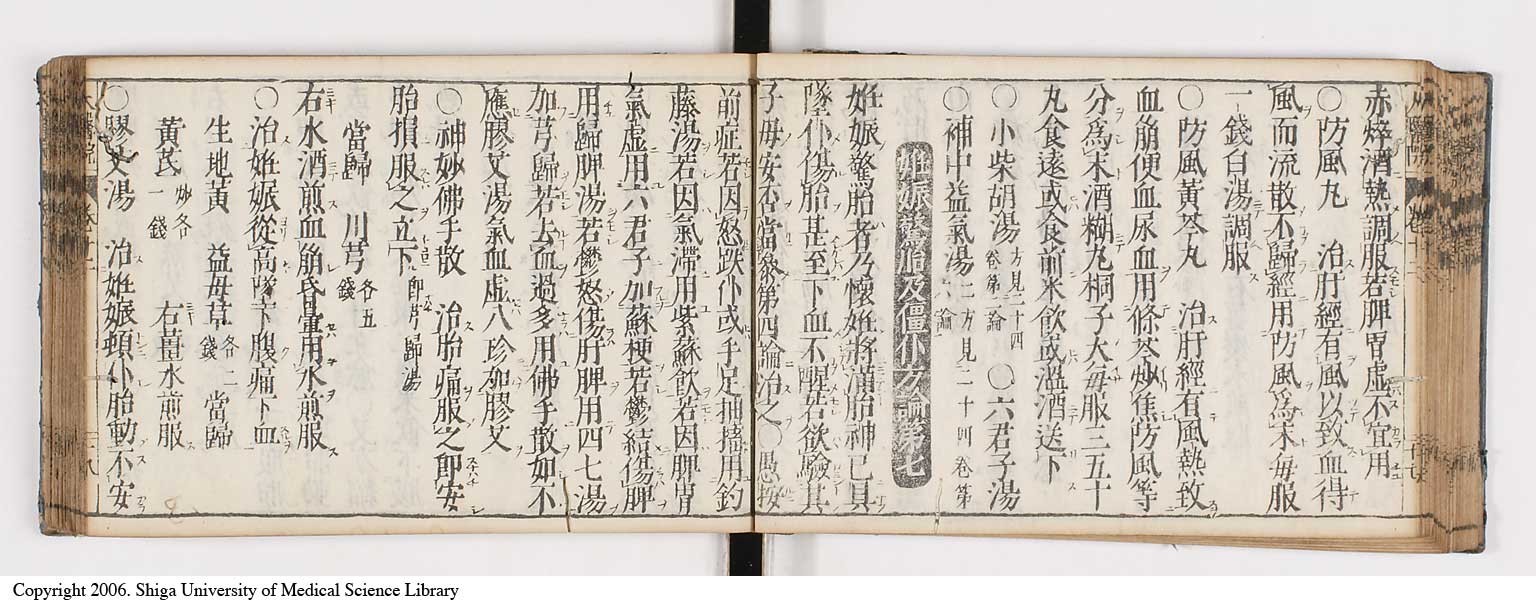 赤焠酒熱調服若脾胃虛不宜用
○防風丸 治肝經有風以致血得
風而流散不歸經用防風爲末毎服
一錢白湯調服
○防風黃芩丸 治肝經有風熱致
血崩便血尿血用條芩炒焦防風等
分爲末酒糊丸桐子大毎服三五十
丸食遠或食前米飲或溫酒送下
○小柴胡湯 方見二十四卷第二論 ○六君子湯
○補中益氣湯 二方見二十四卷第六論
妊娠驚胎及僵仆方論第七
妊娠驚胎者乃懷妊將滿胎神已具
墜仆傷胎甚至下血不醒若欲驗其
子母安否當參第四論治之○愚按
前症若因怒跌仆或手足抽搐用釣
藤湯若因氣滯用紫蘇飲若因脾胃
氣虛用六君子加蘇梗若鬱結傷脾
用歸脾湯若鬱怒傷肝脾用四七湯
加芎歸若去血過多用佛手散如不
應膠艾湯氣血虛八珍加膠艾
○神妙佛手散 治胎痛服之即安
胎損服之立下 即芎歸湯
當歸 川芎 各五錢
右水酒煎血崩昏暈用水煎服
○治妊娠從高墜下腹痛下血
生地黃 益母草 各二錢 當歸
黃芪 炒各一錢 右薑水煎服
○膠艾湯 治妊娠頓仆胎動不安
Copyright 2006. Shiga University of Medical Science Library